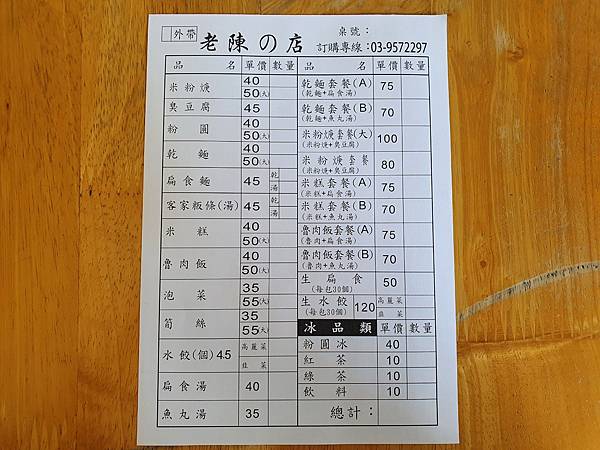 外帶
老陳の店
桌號：
訂購專線：03-9572297
品 名 單價 數量
米粉焿 40
50(大)
臭豆腐 45
粉圓 40
50(大)
乾麵 40
50(大)
扁食麵 45 乾
湯
客家粄條(湯) 45 乾
湯
米糕 40
50(大)
魯肉飯 40
50(大)
泡菜 35
55(大)
筍絲 35
55(大)
水餃(個) 4.5 高麗菜
韭菜
扁食湯 40
魚丸湯 35
品 名 單價 數量
乾麵套餐(A) 75
(乾麵+扁食湯)
乾麵套餐(B) 70
(乾麵+魚丸湯)
米粉焿套餐(大) 100
(米粉焿+臭豆腐)
米粉焿套餐 80
(米粉焿+臭豆腐)
米糕套餐(A) 75
(米糕+扁食湯)
米糕套餐(B) 70
(米糕+魚丸湯)
魯肉飯套餐(A) 75
(魯肉+扁食湯)
魯肉飯套餐(B) 70
(魯肉+魚丸湯)
生扁食 50
(每包30個)
生水餃 120 高麗菜
(每包30個) 韭菜
冰品類 單價 數量
粉圓冰 40
紅茶 10
綠茶 10
飲料 10
總計：